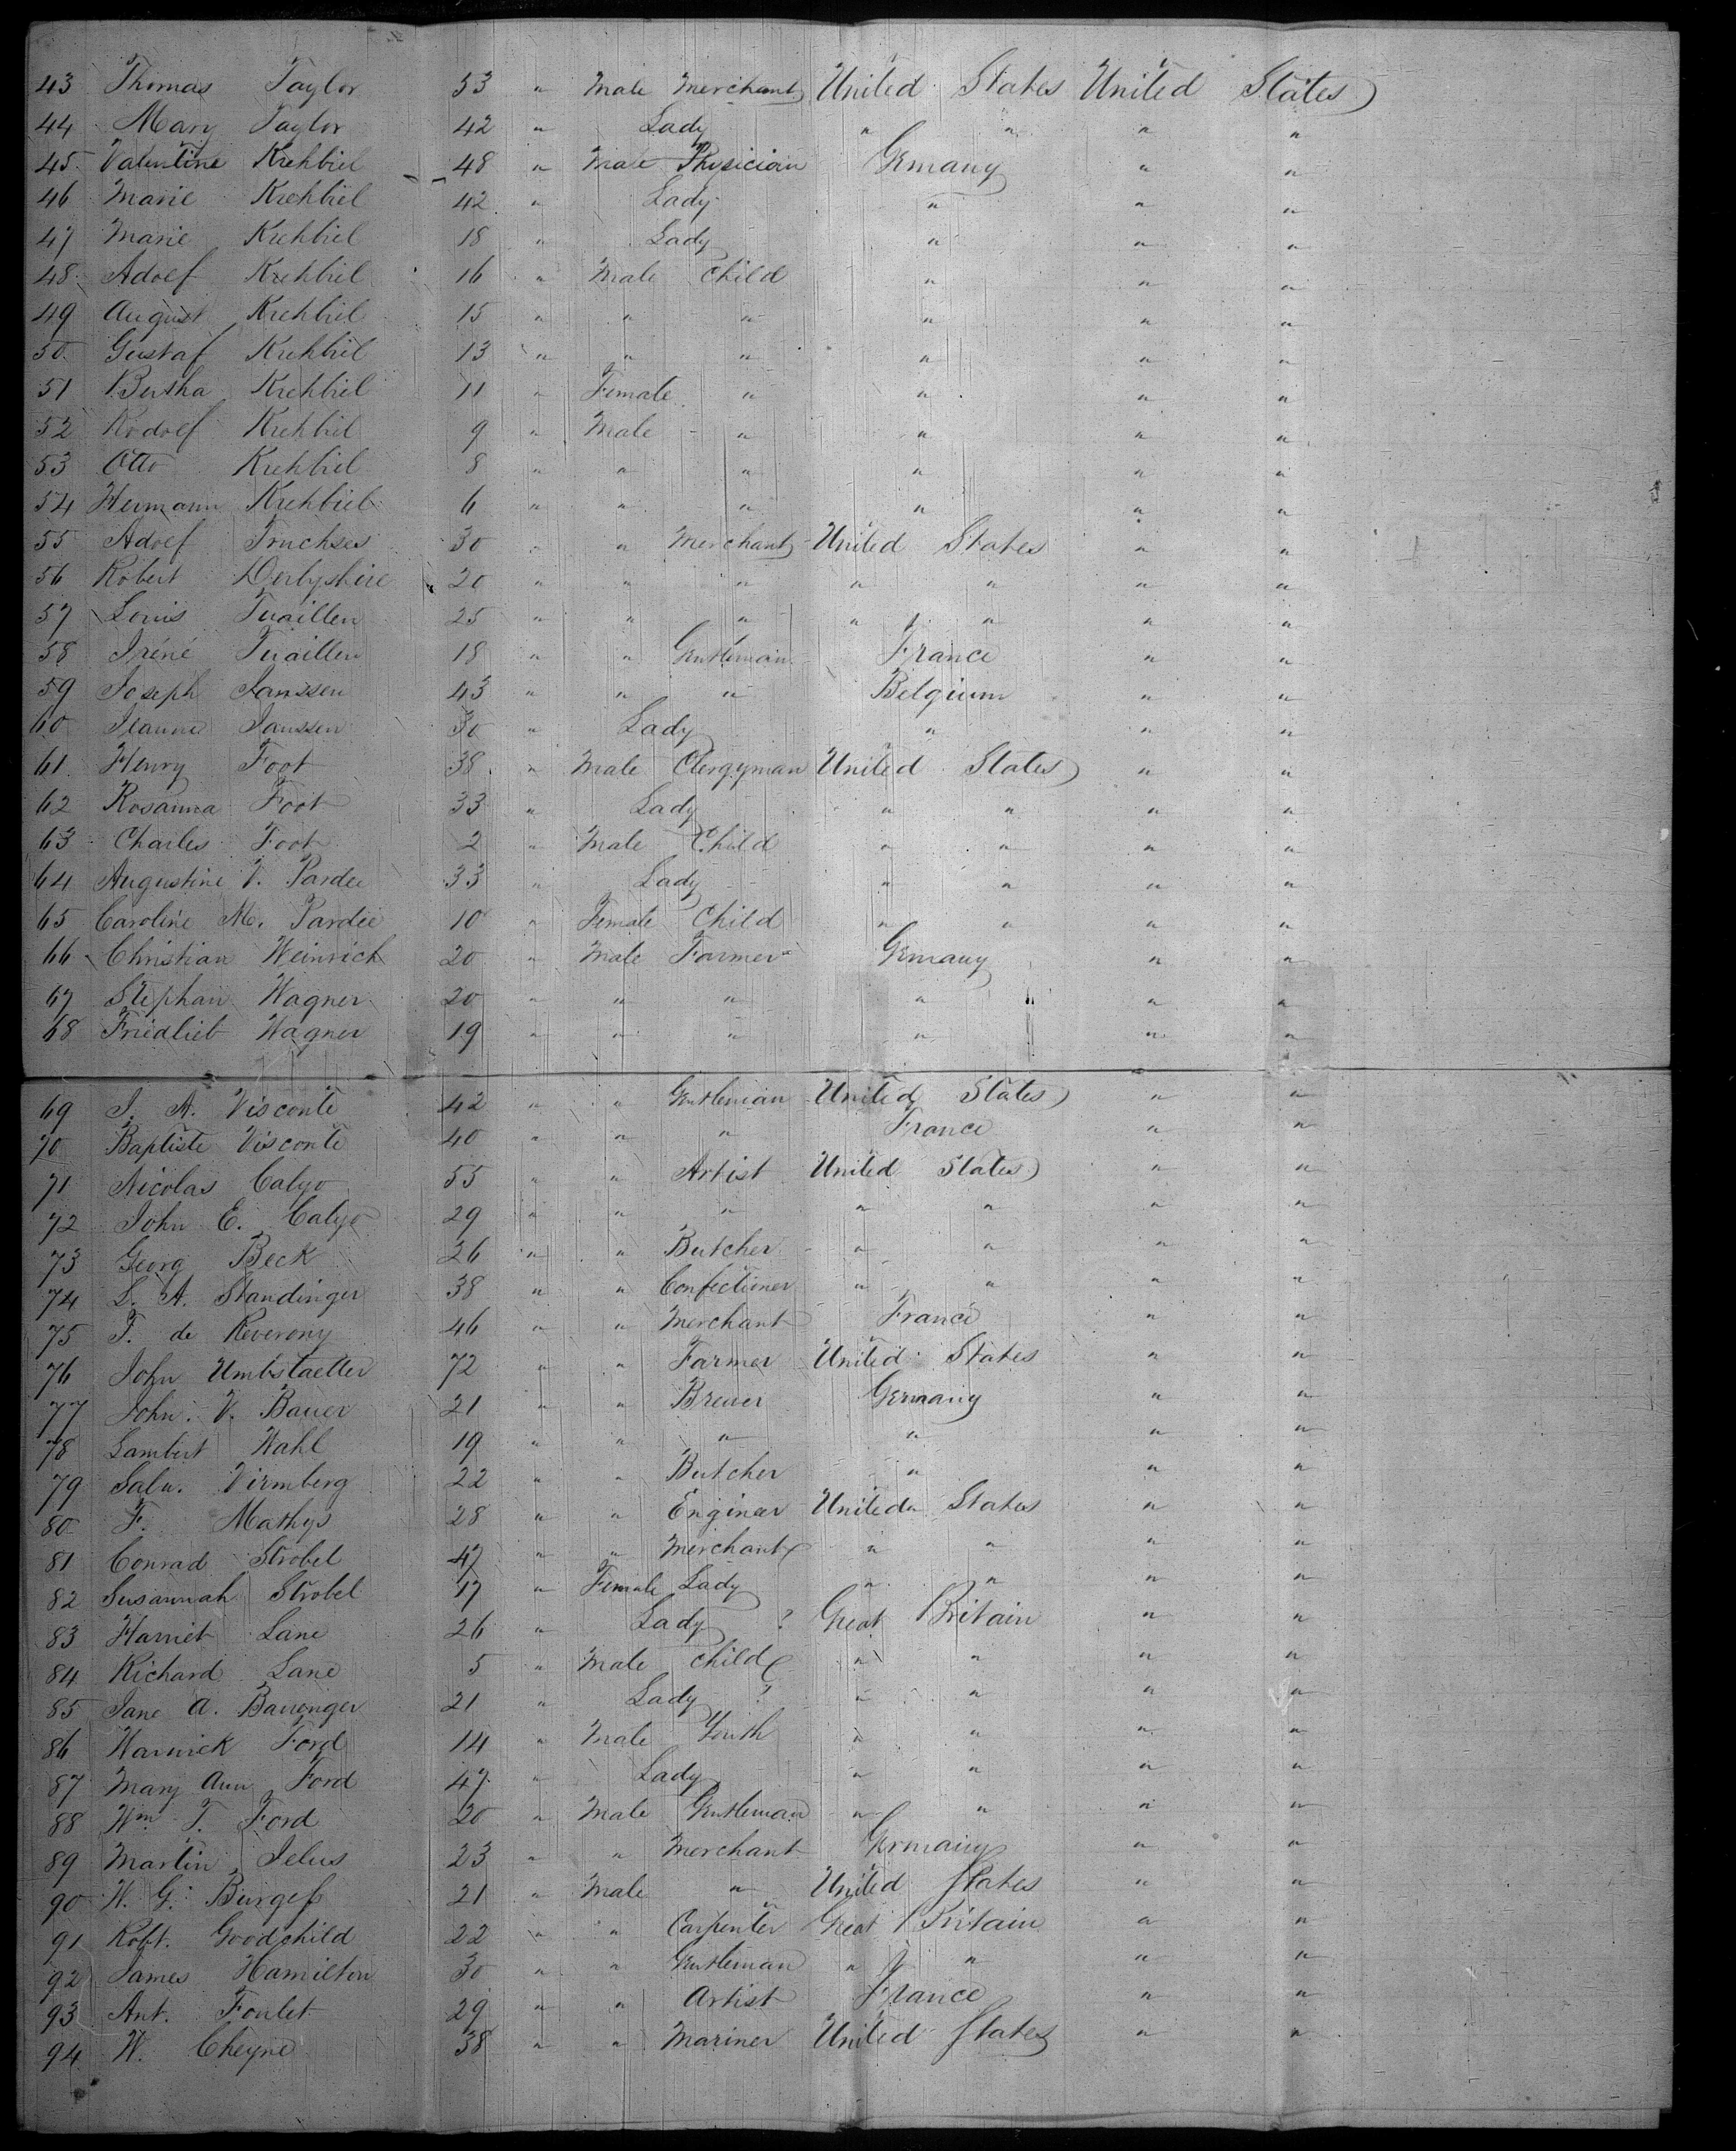 43 Thomas Taylor 53 " Male Merchant United States United States
44 Mary Taylor 42 " Lady " " " "
45 Valentine Krehbiel 48 " Male Physician Germany " "
46 Marie Krehbiel 42 " Lady " " "
47 Marie Krehbiel 18 " Lady " " "
48 Adolf Krehbiel 16 " Male Child " " "
49 August Krehbiel 15 " " " " " "
50 Gustaf Krehbiel 13 " " " " " "
51 Bertha Krehbiel 11 " Female " " " "
52 Rodolf Krehbiel 9 " Male " " " "
53 Otto Krehbiel 8 " " " " " "
54 Hermann Krehbiel 6 " " " " " "
55 Adolf Truchses 30 " " Merchant United States " "
56 Robert Derbyshire 20 " " " " " " "
57 Louis Tuaillen 25 " " " " " " "
58 Iréné Tuaillen 18 " " Gentleman France " "
59 Joseph Janssen 43 " " " Belgium " "
60 Jeanne Janssen 30 " Lady " " "
61 Henry Foot 38 " Male Clergyman United States " "
62 Rosanna Foot 33 " Lady " " " "
63 Charles Foot 2 " Male Child " " " "
64 Augustine V. Pardee 33 " Lady " " " "
65 Caroline M. Pardee 10 " Female Child " " " "
66 Christian Weinrich 20 " Male Farmer Germany " "
67 Stephan Wagner 20 " " " " " "
68 Friedlieb Wagner 19 " " " " " "
69 J. A. Visconte 42 " " Gentleman United States " "
70 Baptiste Visconte 40 " " " France " "
71 Nicolas Calyo 55 " " Artist United States " "
72 John E. Calyo 29 " " " " " " "
73 Georg Beck 26 " " Butcher " " " "
74 L. A. Standinger 38 " " Confectioner " " " "
75 T. de Reverony 46 " " Merchant France " "
76 John Umbstaetter 72 " " Farmer United States " "
77 John V. Bauer 21 " " Brewer Germany " "
78 Lambert Wahl 19 " " " " " "
79 Salu. Virmberg 22 " " Butcher " " "
80 F. Mathys 28 " " Enginer United States " "
81 Conrad Strobel 47 " " Merchant " " " "
82 Susannah Strobel 17 " Female Lady " " " "
83 Harriet Lane 26 " Lady ? Great Britain " "
84 Richard Lane 5 " Male Child " " " "
85 Jane A. 21 " Lady ? " " " "
86 Warwick Ford 14 " Male Youth " " " "
87 Mary Ann Ford 47 " Lady " " " "
88 Wm T. Ford 20 " Male Gentleman " " " "
89 Martin Jelus 23 " " Merchant Germany " "
90 W. G. Burgess 21 " Male " United States " "
91 Robt. Goodchild 22 " " Carpenter Great Britain " "
92 James Hamilton 30 " " Gentleman " " " "
93 Ant. Foulet 29 " " Artist France " "
94 W. Cheyne 38 " " Mariner United States " "